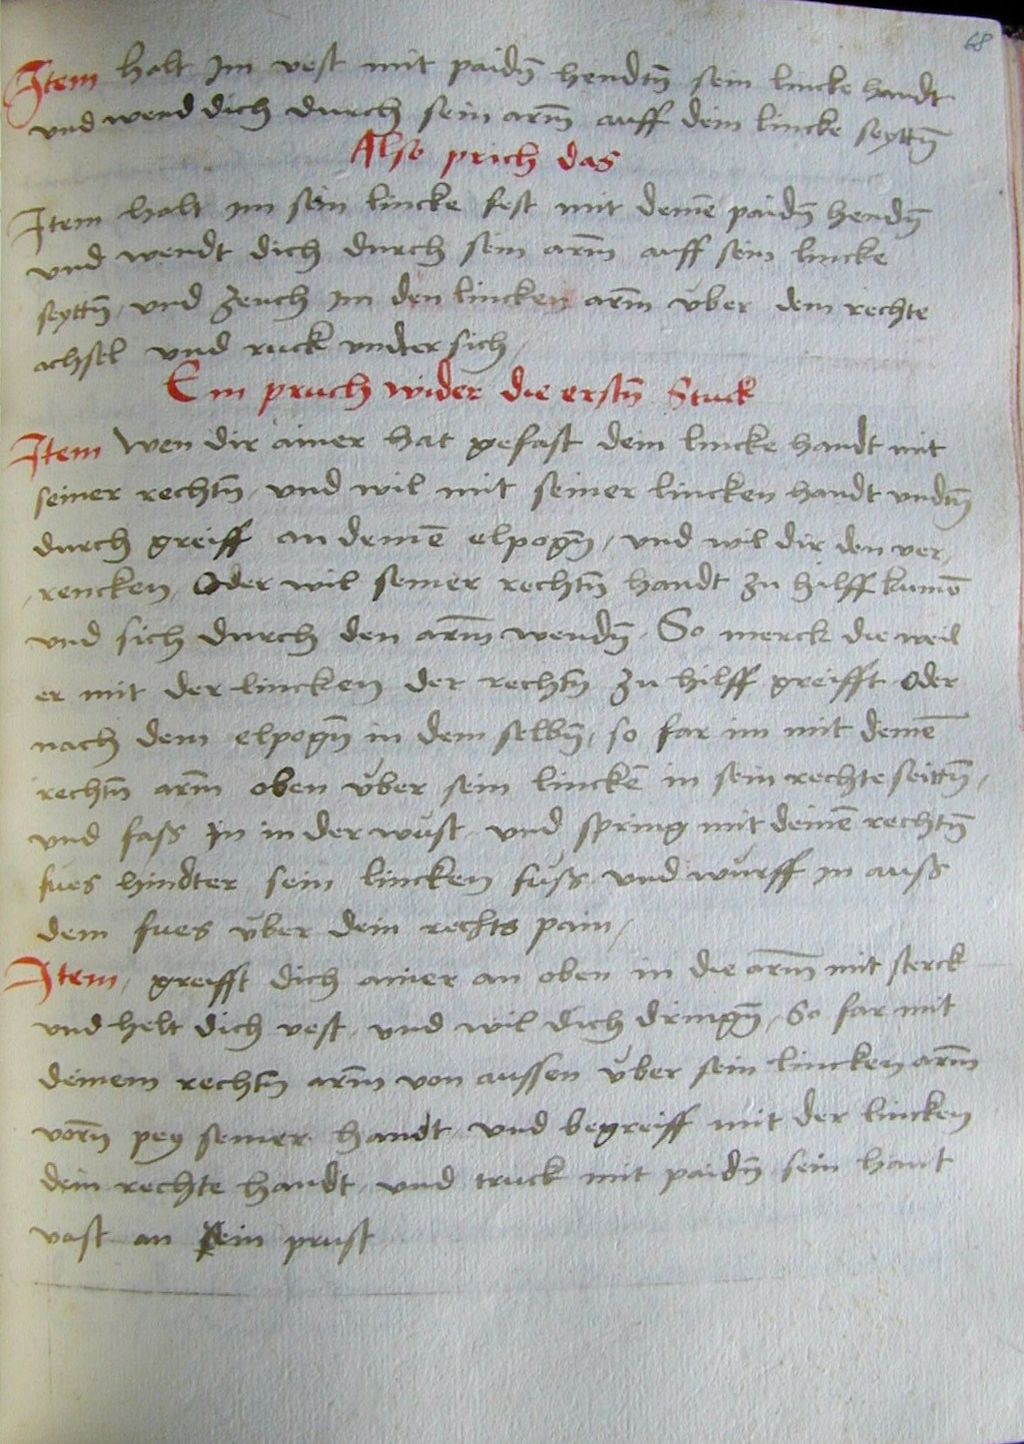 68
Item halt Im vest mit paidn̄ hendtn̄ sein lincke handt
und wend dich durch sein arm̄ auff dein lincke seyttn̄
Also prich das
Item halt im sein lincke fest mit deinē paidn̄ hendn̄
und wendt dich durch sein arm̄ auff sein lincke
seyttn̄, und zeuch Im den lincken arm̄ über dein rechte
achsel und ruck undter sich,
Ein pruch wider die erstn̄ Stuck
Item Wen dir ainer hat gefast dein lincke handt mit
seiner rechtn̄, und wil mit seiner lincken handt undtn̄
durch greiff an deinē elpogn̄, und wil dir den ver,
,rencken, Oder wil seiner rechtn̄ handt zu hilff kumē
und sich durch den arm̄ wendn̄. So merck die weil
er mit der lincken der rechtn̄ zu hilff greifft oder
nach dem elpogn̄ in dem selbn̄, so far im mit deinē
rechtn̄ arm̄ oben über sein linckē in sein rechte seittn̄,
und fass In in der wüst und spring mit deinē rechtn̄
fues hindter sein lincken fuss und wurff in auss
dem fues über dein rechts pain,
Item, greifft dich ainer an oben in die arm̄ mit sterck
und helt dich vest, und wil dich dringn̄, So far mit
deinem rechtn̄ arm̄ von aussen über sein lincken arm̄
vorn̄ pey seiner handt, und begreiff mit der lincken
dein rechte handt, und truck mit paidn̄ sein hant
vast an sein prust